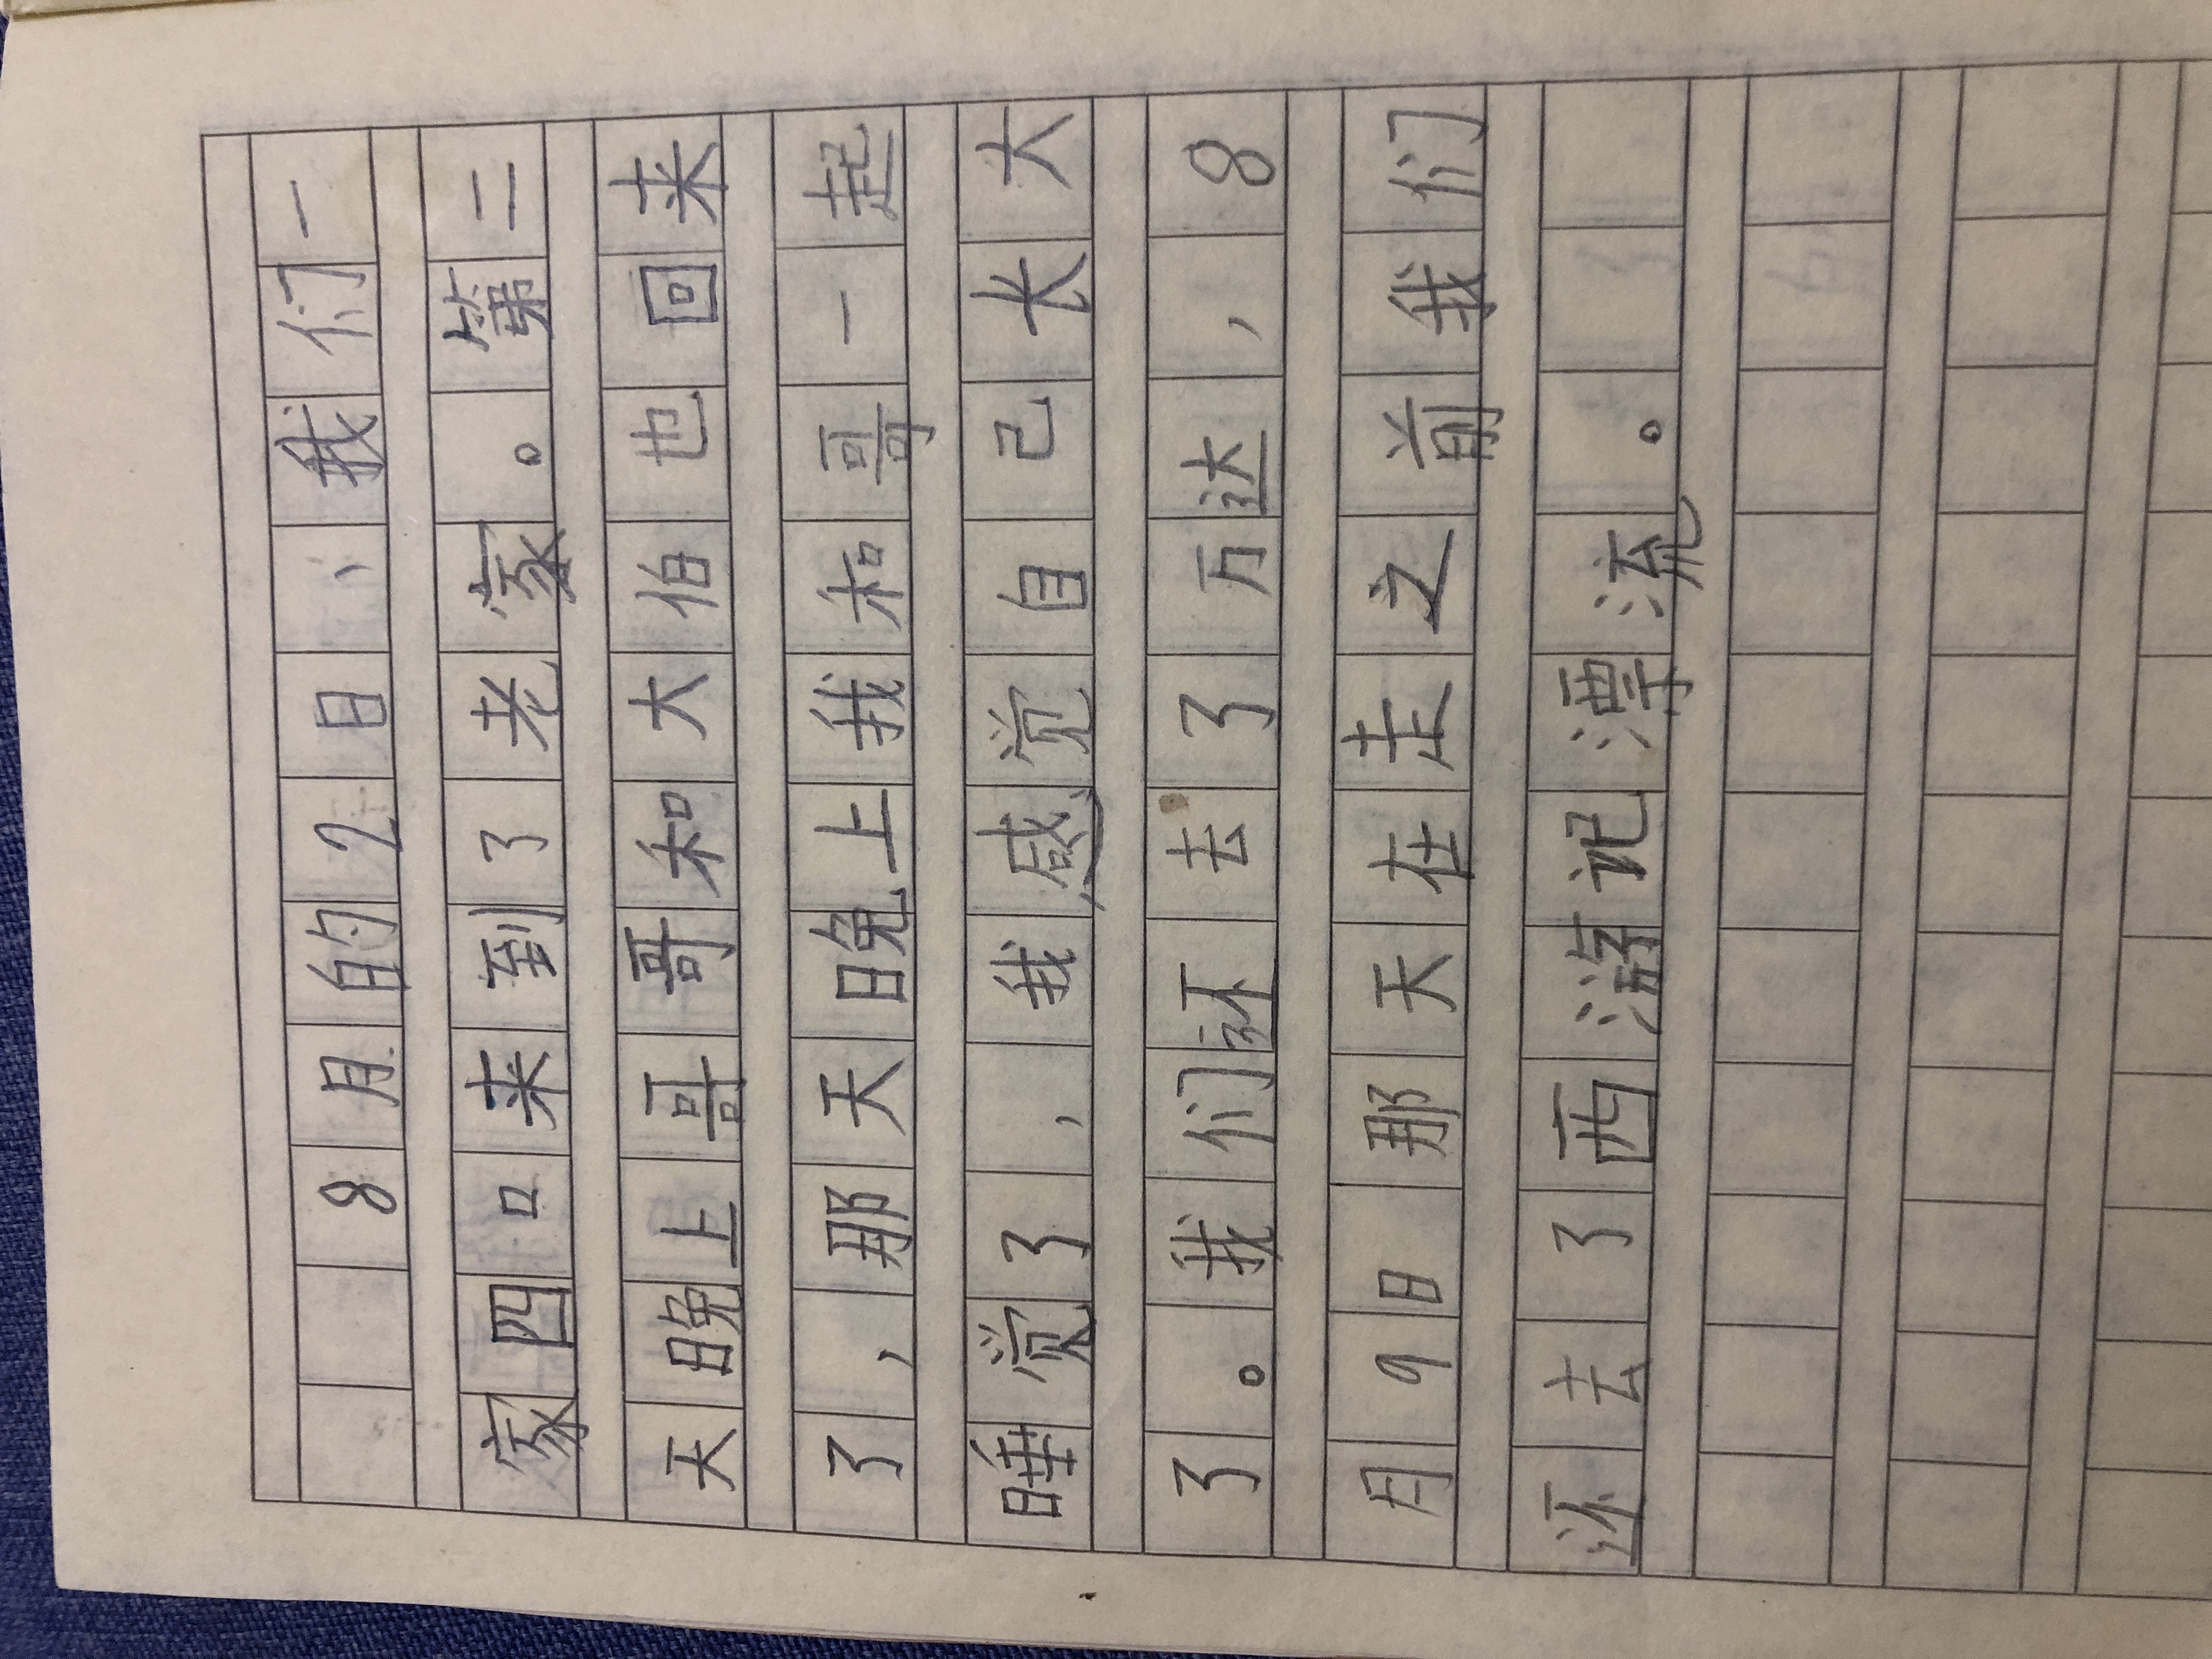 8月的2日、我们一
家四口来到了老家。第二
天晚上哥哥和大伯也回来
了，那天晚上我和哥一起
睡觉了，我感觉自己长大
了。我们还去了万达，8
月9日那天在走之前我们
还去了西游记漂流。